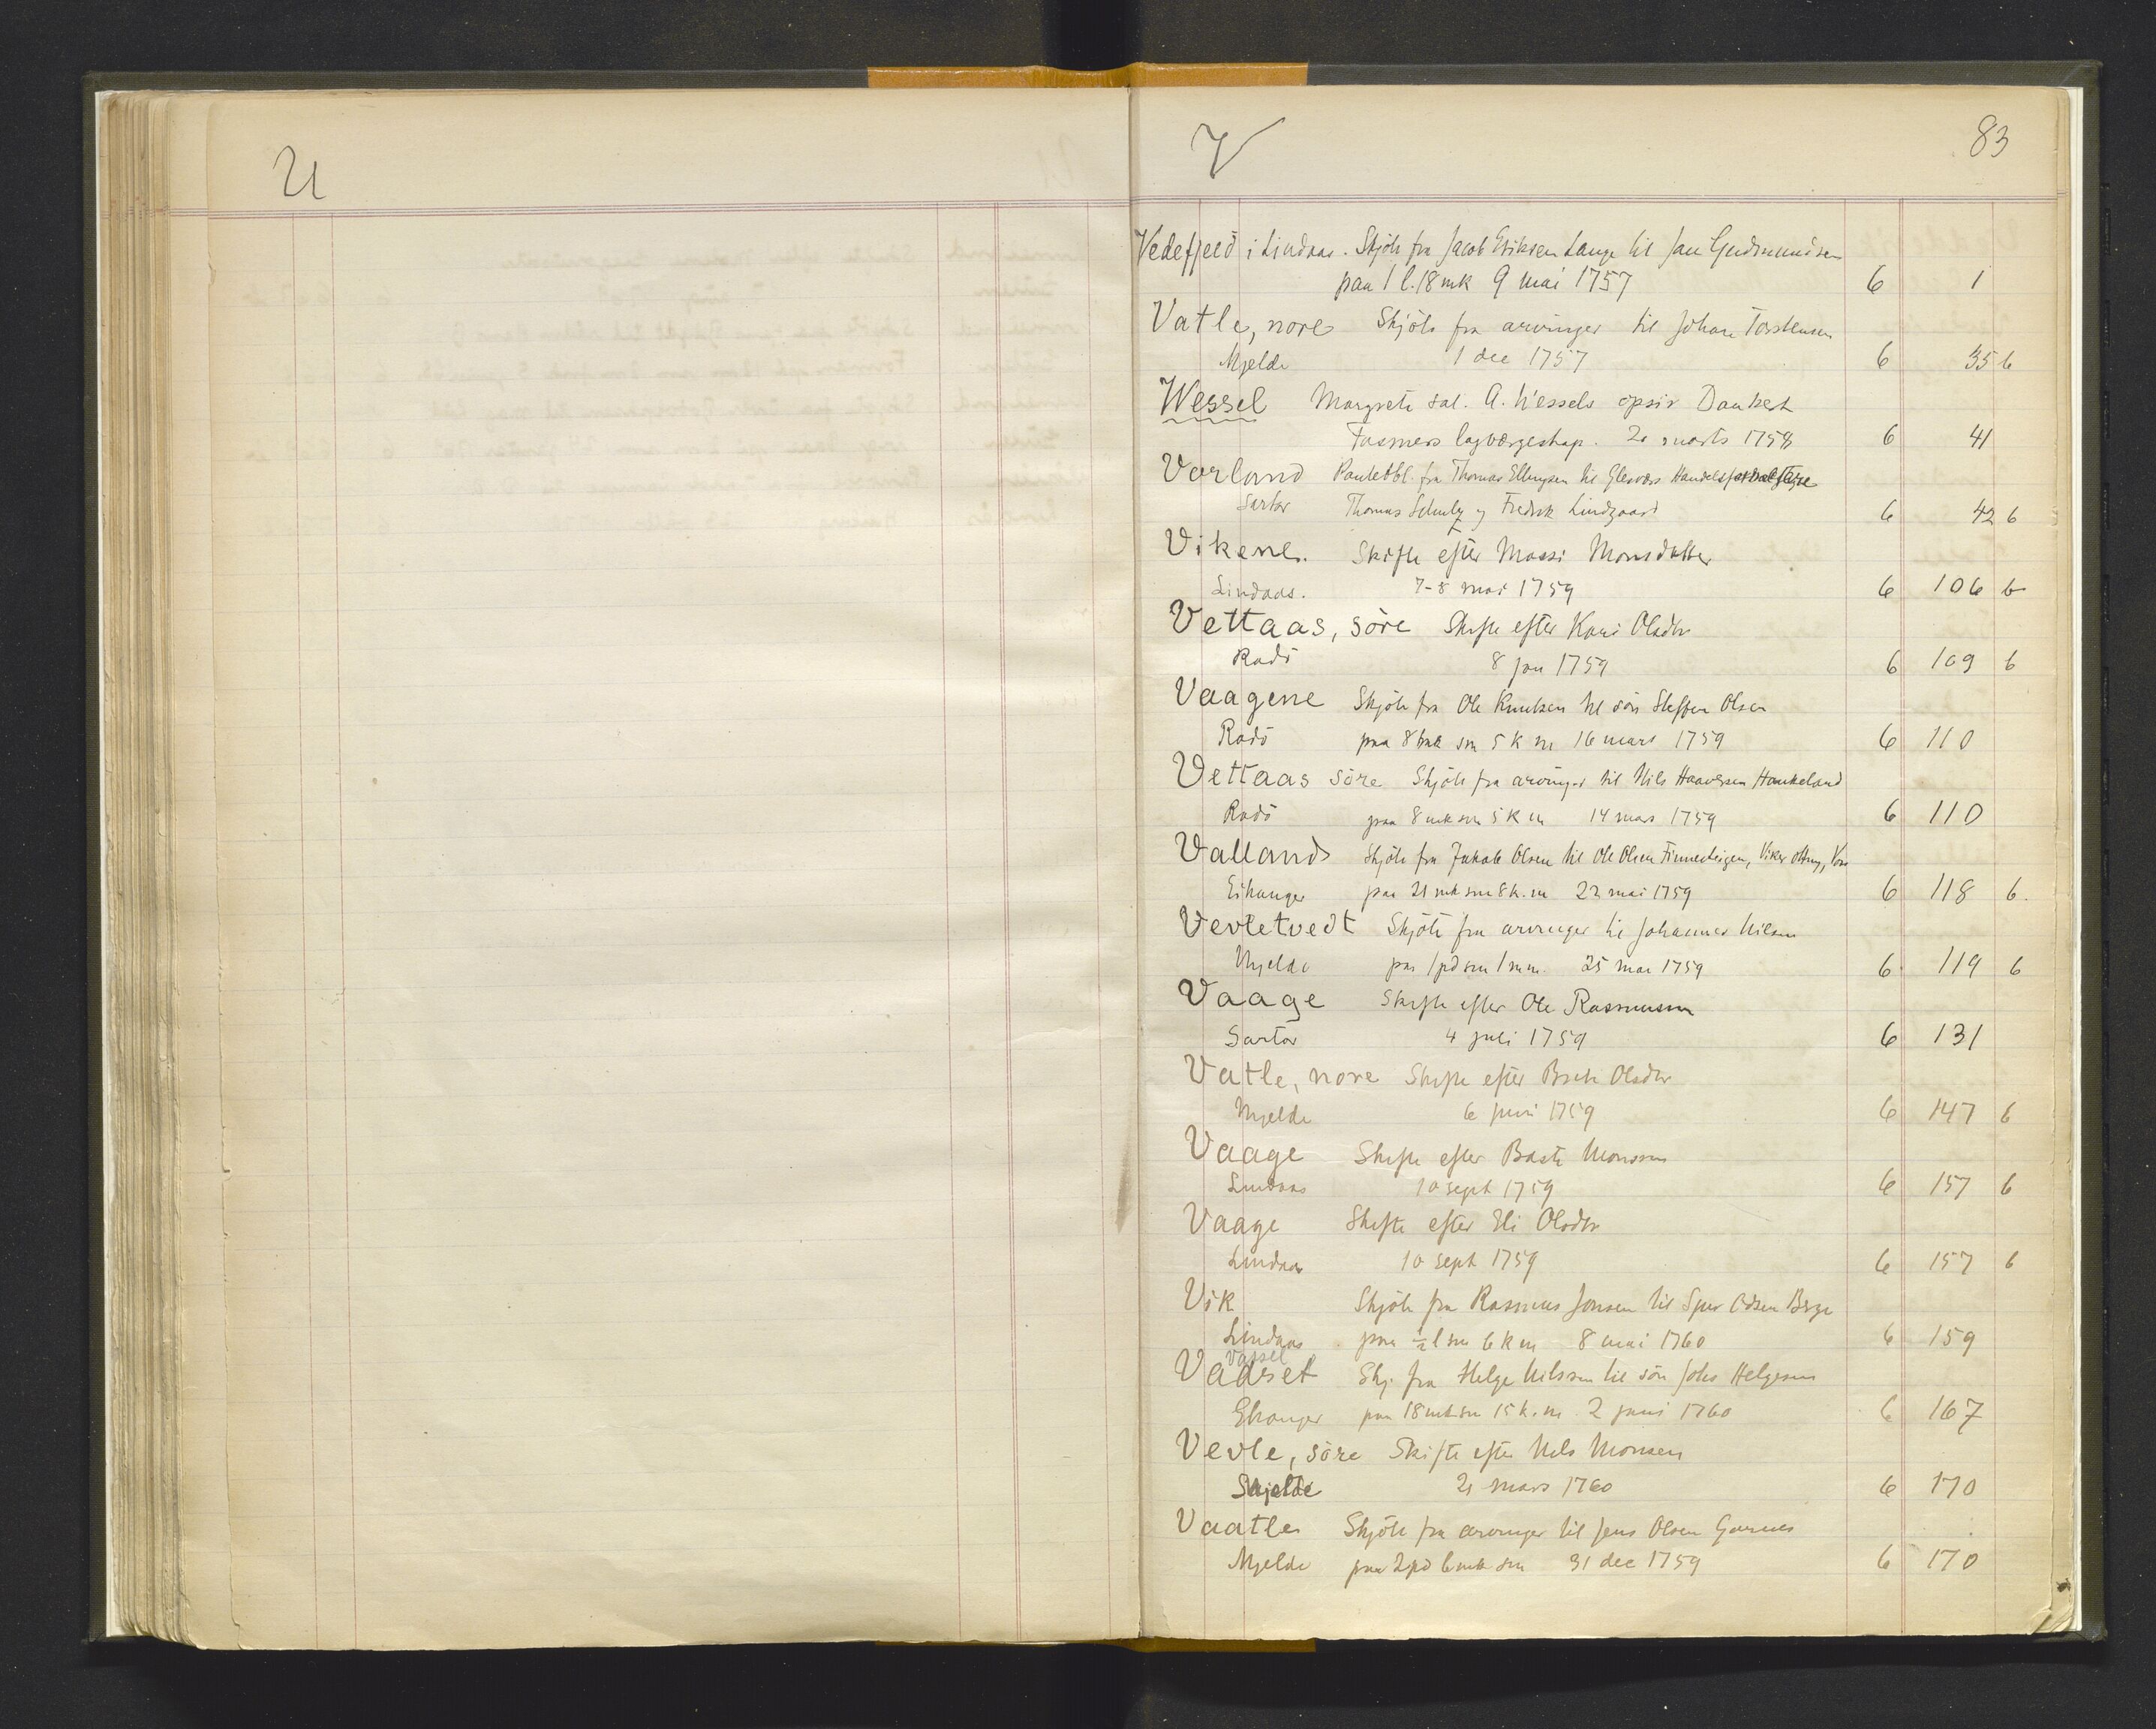 U
V
83
Vedefjeld i Lindaas. Skjöte fra Jacob Eriksen Lange til Jan Gudmundsen
paa 1 l. 18 mk 9 mai 1757 6 1
Vatle, nore Skjöte fra arvinger til Johan Torstensen
Mjelde 1 dec 1757 6 35 b
Wessel Margrete sal. A. Wessels opsir Dankert
Fasmers lagværgeskap. 20 marts 1758 6 41
Vorland Panteobl. fra Thomas Ellingsen til Glesvær Handels
Sartor Thomas Schultz og Fredrik Lindgaard 6 42 b
Vikene. Skifte efter Massi Monsdatter
Lindaas. 7-8 mai 1759 6 106 b
Vettaas, söre Skifte efter Kari Olsdtr
Radö 8 jan 1759 6 109 b
Vaagene Skjöte fra Ole Knutsen til sön Steffen Olsen
Radö paa 8 mk sm 5 k m 16 mars 1759 6 110
Vettaas söre Skjöte fra arvinger til Nils Haaversen Haukeland
Radö paa 8 mk sm 5 k m 14 mars 1759 6 110
Valland Skjöte fra Jakob Olsen til Ole Olsen Finnesteigen, Vikør ottng, Vos
Eikanger paa 21 mk sm 8 k. m 22 mai 1759 6 118 b.
Vevletvedt Skjöte fra arvinger til Johannes Nilsen
Mjelde paa 1 pd sm 1 m m. 25 mai 1759 6 119 b
Vaage Skifte efter Ole Rasmussen
Sartor 4 juli 1759 6 131
Vatle, nore Skifte efter Brite Olsdtr
Mjelde 6 juni 1759 6 147 b
Vaage Skifte efter Baste Monssen
Lindaas 10 sept 1759 6 157 b
Vaage Skifte efter Eli Olsdtr
Lindaas 10 sept 1759 6 157 b
Vik Skjöte fra Rasmus Jonsen til Sjur Odsen Berge
Lindaas paa ½ l sm 6 k m 8 mai 1760 6 159
Vapsel
Vadset Skj. fra Helge Nilssen til sön Johs Helgesen
Ekanger paa 18 mk sm 15 k. m 2 juni 1760 6 167
Vevle, söre Skifte efter Nils Monsen
Mjelde 21 mars 1760 6 170
Vaatle Skjöte fra arvinger til Jens Olsen Garnes
Mjelde paa 2 pd 6 mk sm 31 dec 1759 6 170